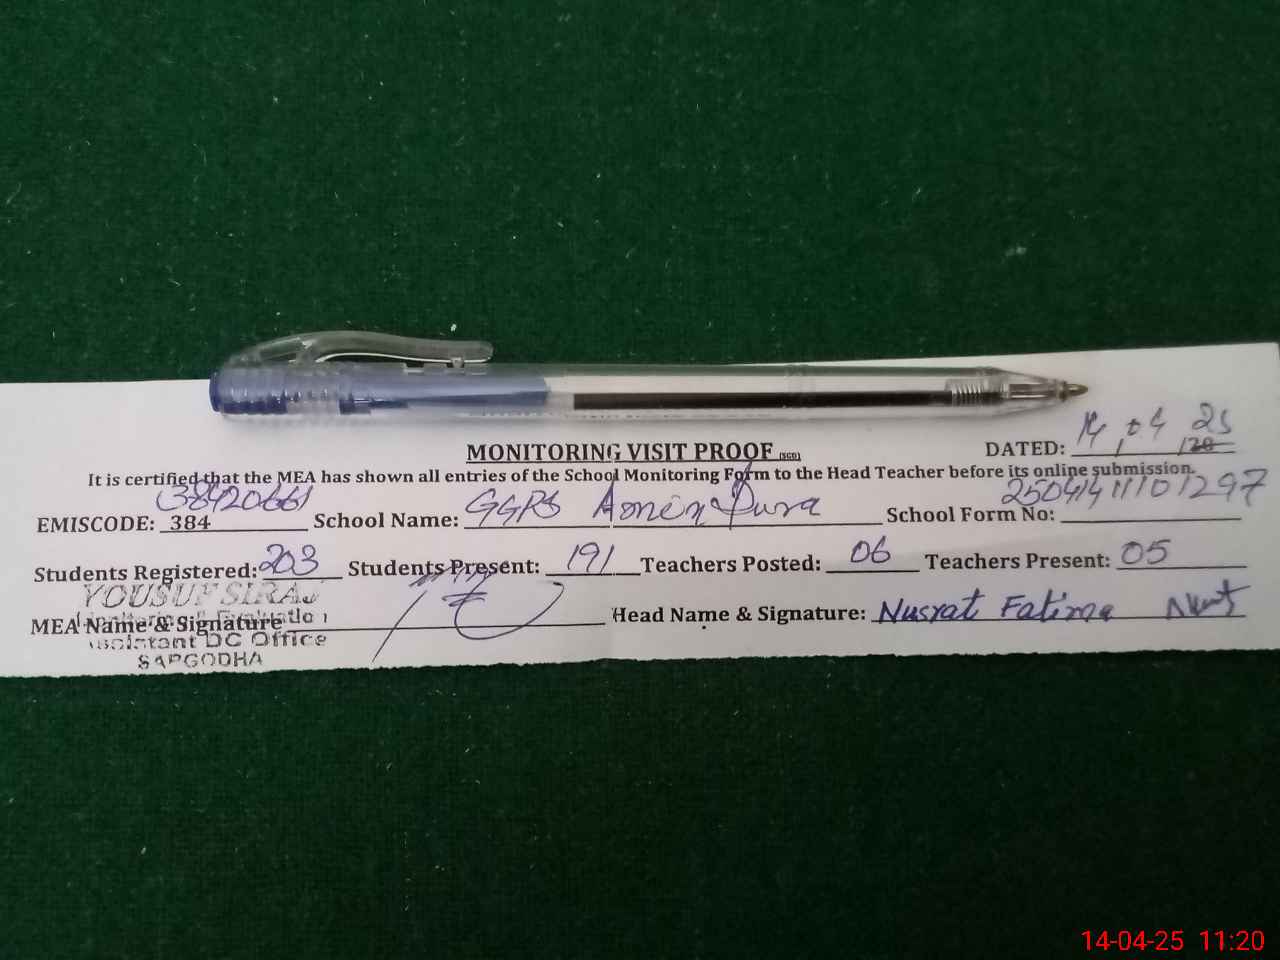 MONITORING VISIT PROOF (SGD) DATED: 14, 04, 25
It is certified that the MEA has shown all entries of the School Monitoring Form to the Head Teacher before its online submission.
EMISCODE: 384 38420661 School Name: GGPS Ameen Pura School Form No: 25041411101297
Students Registered: 203 Students Present: 191 Teachers Posted: 06 Teachers Present: 05
YOUSUF SIRAJ
MEA Name & Signature Head Name & Signature: Nusrat Fatima
Assistant DC Office
SARGODHA
14-04-25 11:20